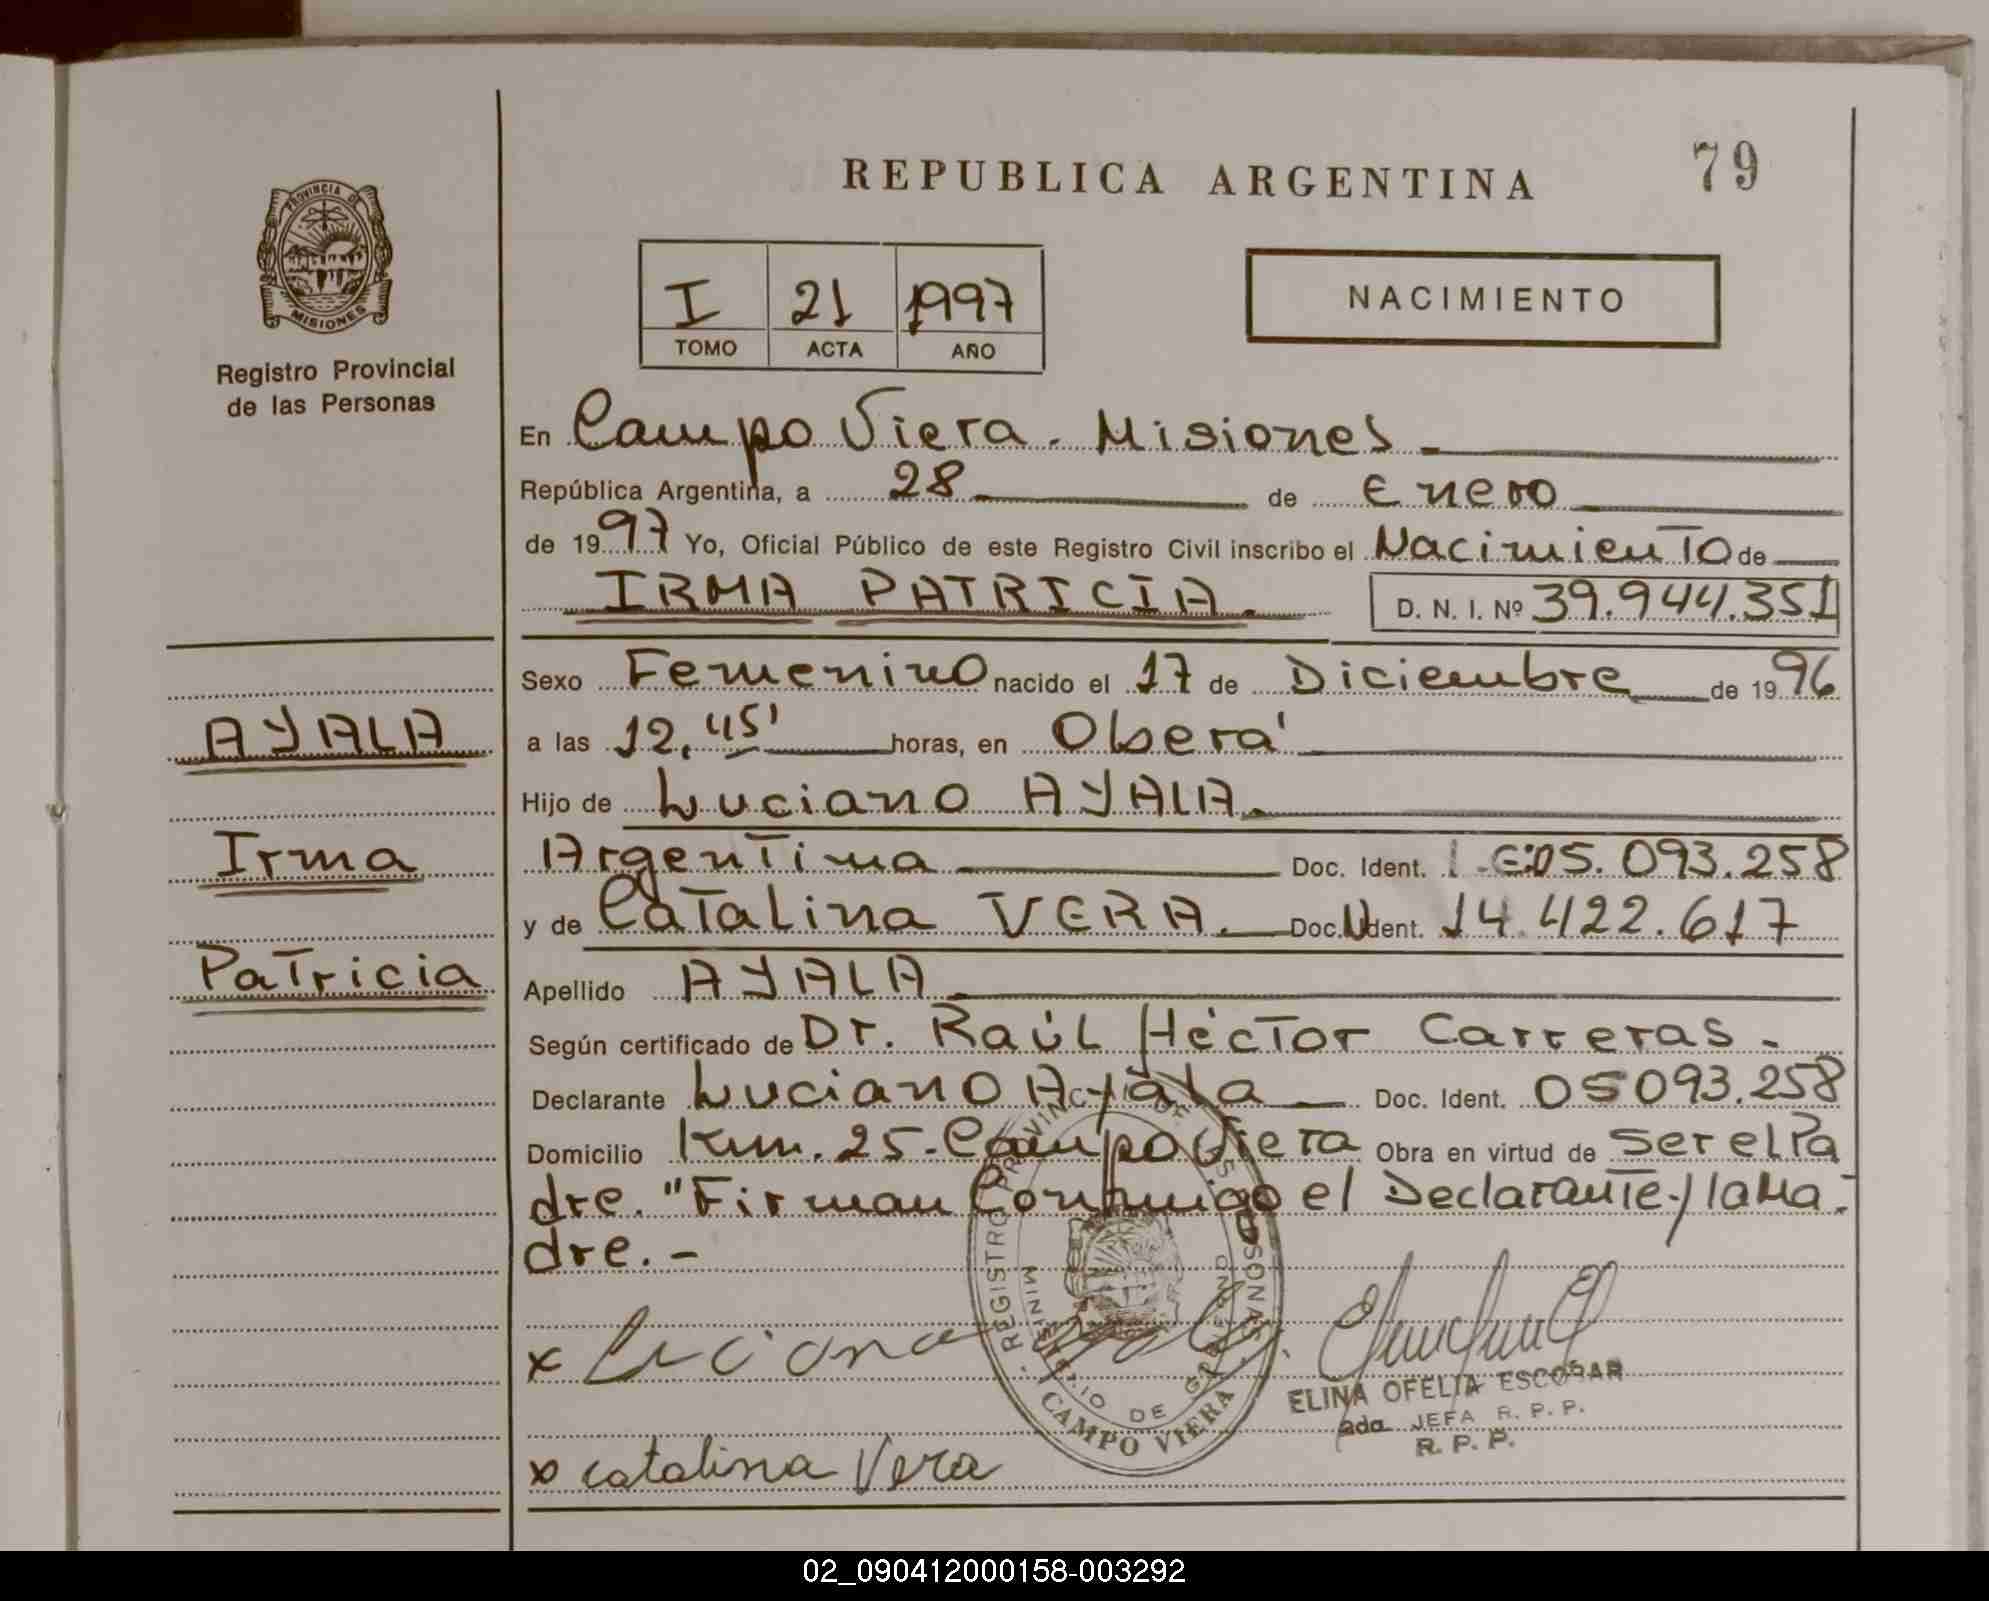 79
REPUBLICA ARGENTINA
PROVINCIA DE
MISIONES
Registro Provincial
de las Personas
I 21 1997
TOMO ACTA AÑO
NACIMIENTO
En Campo Viera. Misiones
República Argentina, a 28 de Enero
de 1997 Yo, Oficial Público de este Registro Civil inscribo el Nacimiento de
IRMA PATRICIA. D. N. I. Nº 39.944.351
Sexo Femenino nacido el 17 de Diciembre de 1996
AYALA
a las 12,45' horas, en Oberá
Hijo de Luciano AYALA.
Irma
Argentina Doc. Ident. L.E:05.093.258
y de Catalina VERA. Doc. Ident. 14.422.617
Patricia
Apellido AYALA
Según certificado de Dr. Raúl Héctor Carreras.-
Declarante Luciano Ayala Doc. Ident. 05093.258
Domicilio Km. 25-Campo Viera Obra en virtud de ser el Pa
dre. "Firman Conmigo el Declarante y la Ma-
dre.-
x Luciano Ayala
x catalina Vera
REGISTRO PROVINCIAL DE LAS PERSONAS
MINISTERIO DE GOBIERNO
CAMPO VIERA
ELINA OFELIA ESCOBAR
2da JEFA R. P. P.
R. P. P.
02_090412000158-003292